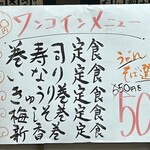 ワンコインメニュー
巻寿司定食
いなり定食
きゅうり巻定食
梅しそ巻定食
新香巻定食
うどん
そば選
550円を
50